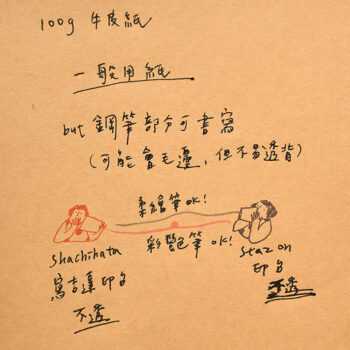 100g 牛皮紙
一般用紙
but 鋼筆部分可書寫
(可能會毛邊,但不易透背)
柔繪筆OK!
彩艷筆OK!
Shachihata
寫吉達印台
不透
Staz on
印台
不透